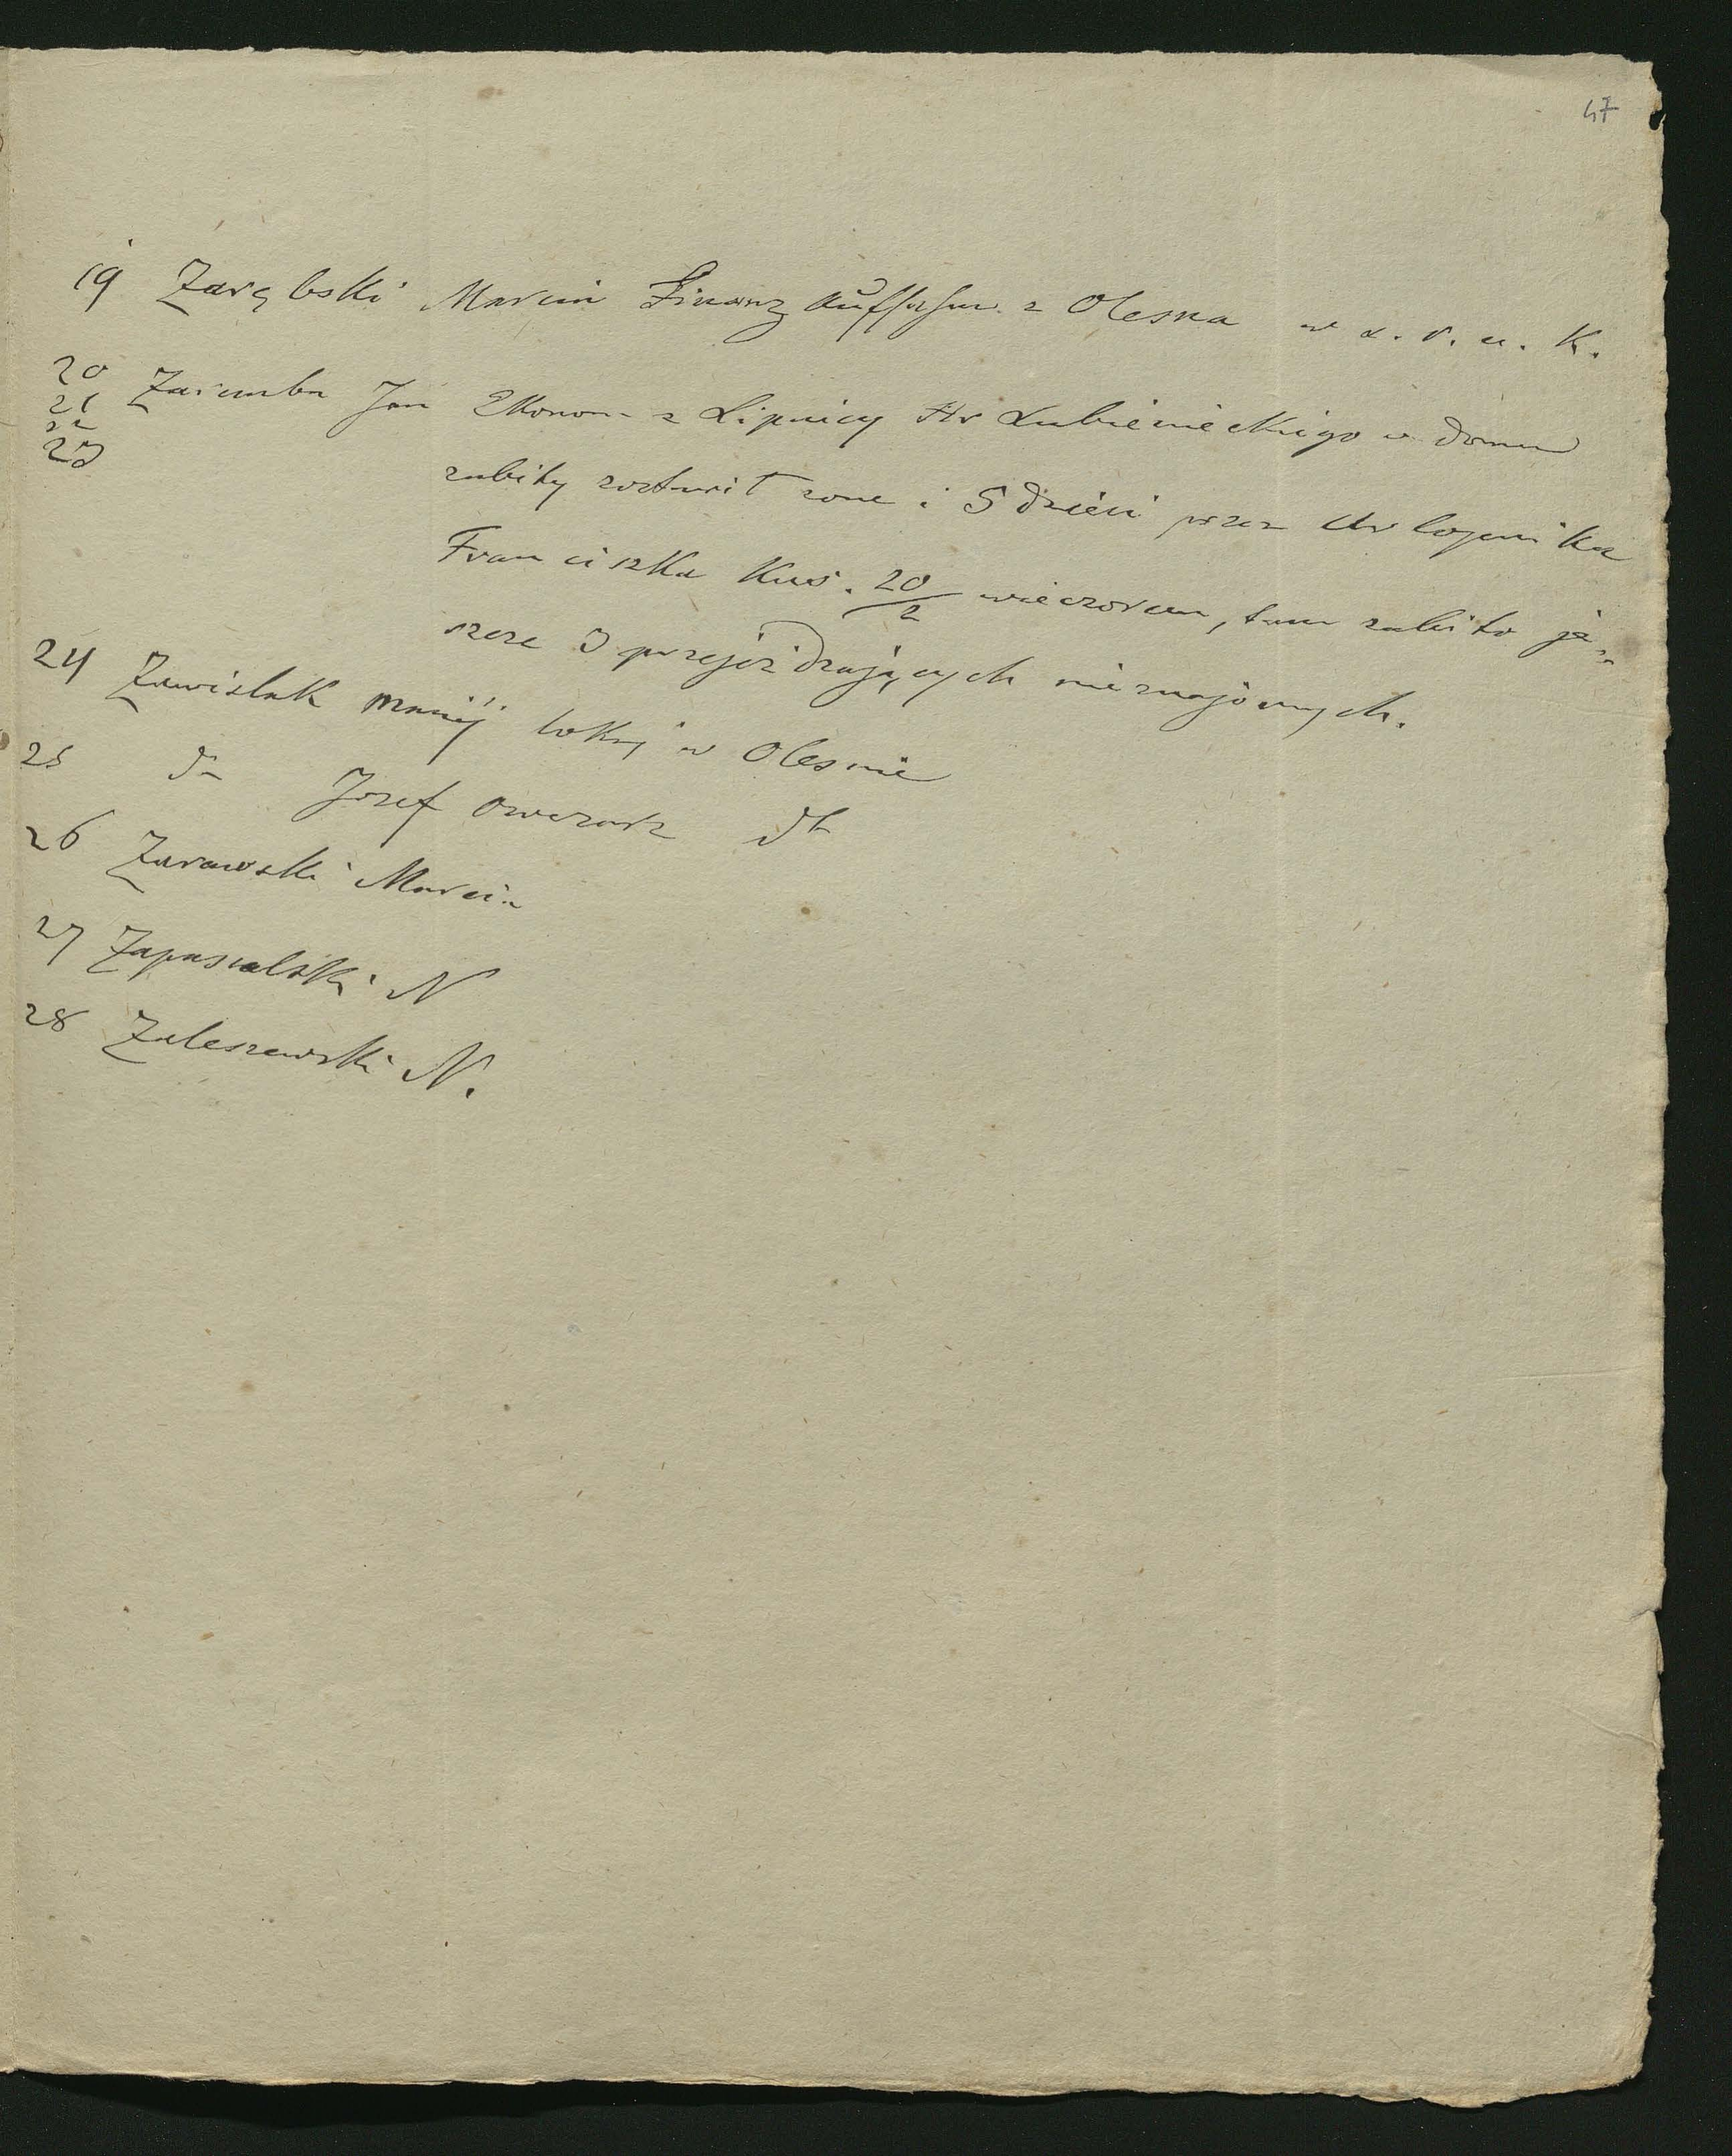 47
19 Zarębski Marcin Finanz Aufseher z Olesna w d. r. u. K.
20 Zaremba Jan Ekonom z Lipnicy Hr Lubienieckiego w domu
21
22
23 zabity zostawił zone i 5 dzieci przez Urlopnika
Franciszka Kus. 20/2 wieczorem, tam zabito je„
szcze 3 przejeżdzających nieznajomych.
24 Zawislak lokaj w Olesnie
25 dto Jozef owczarz dto
26 Zarawski Marcin
27 Zapasalski N
28 Zaleszewski N.